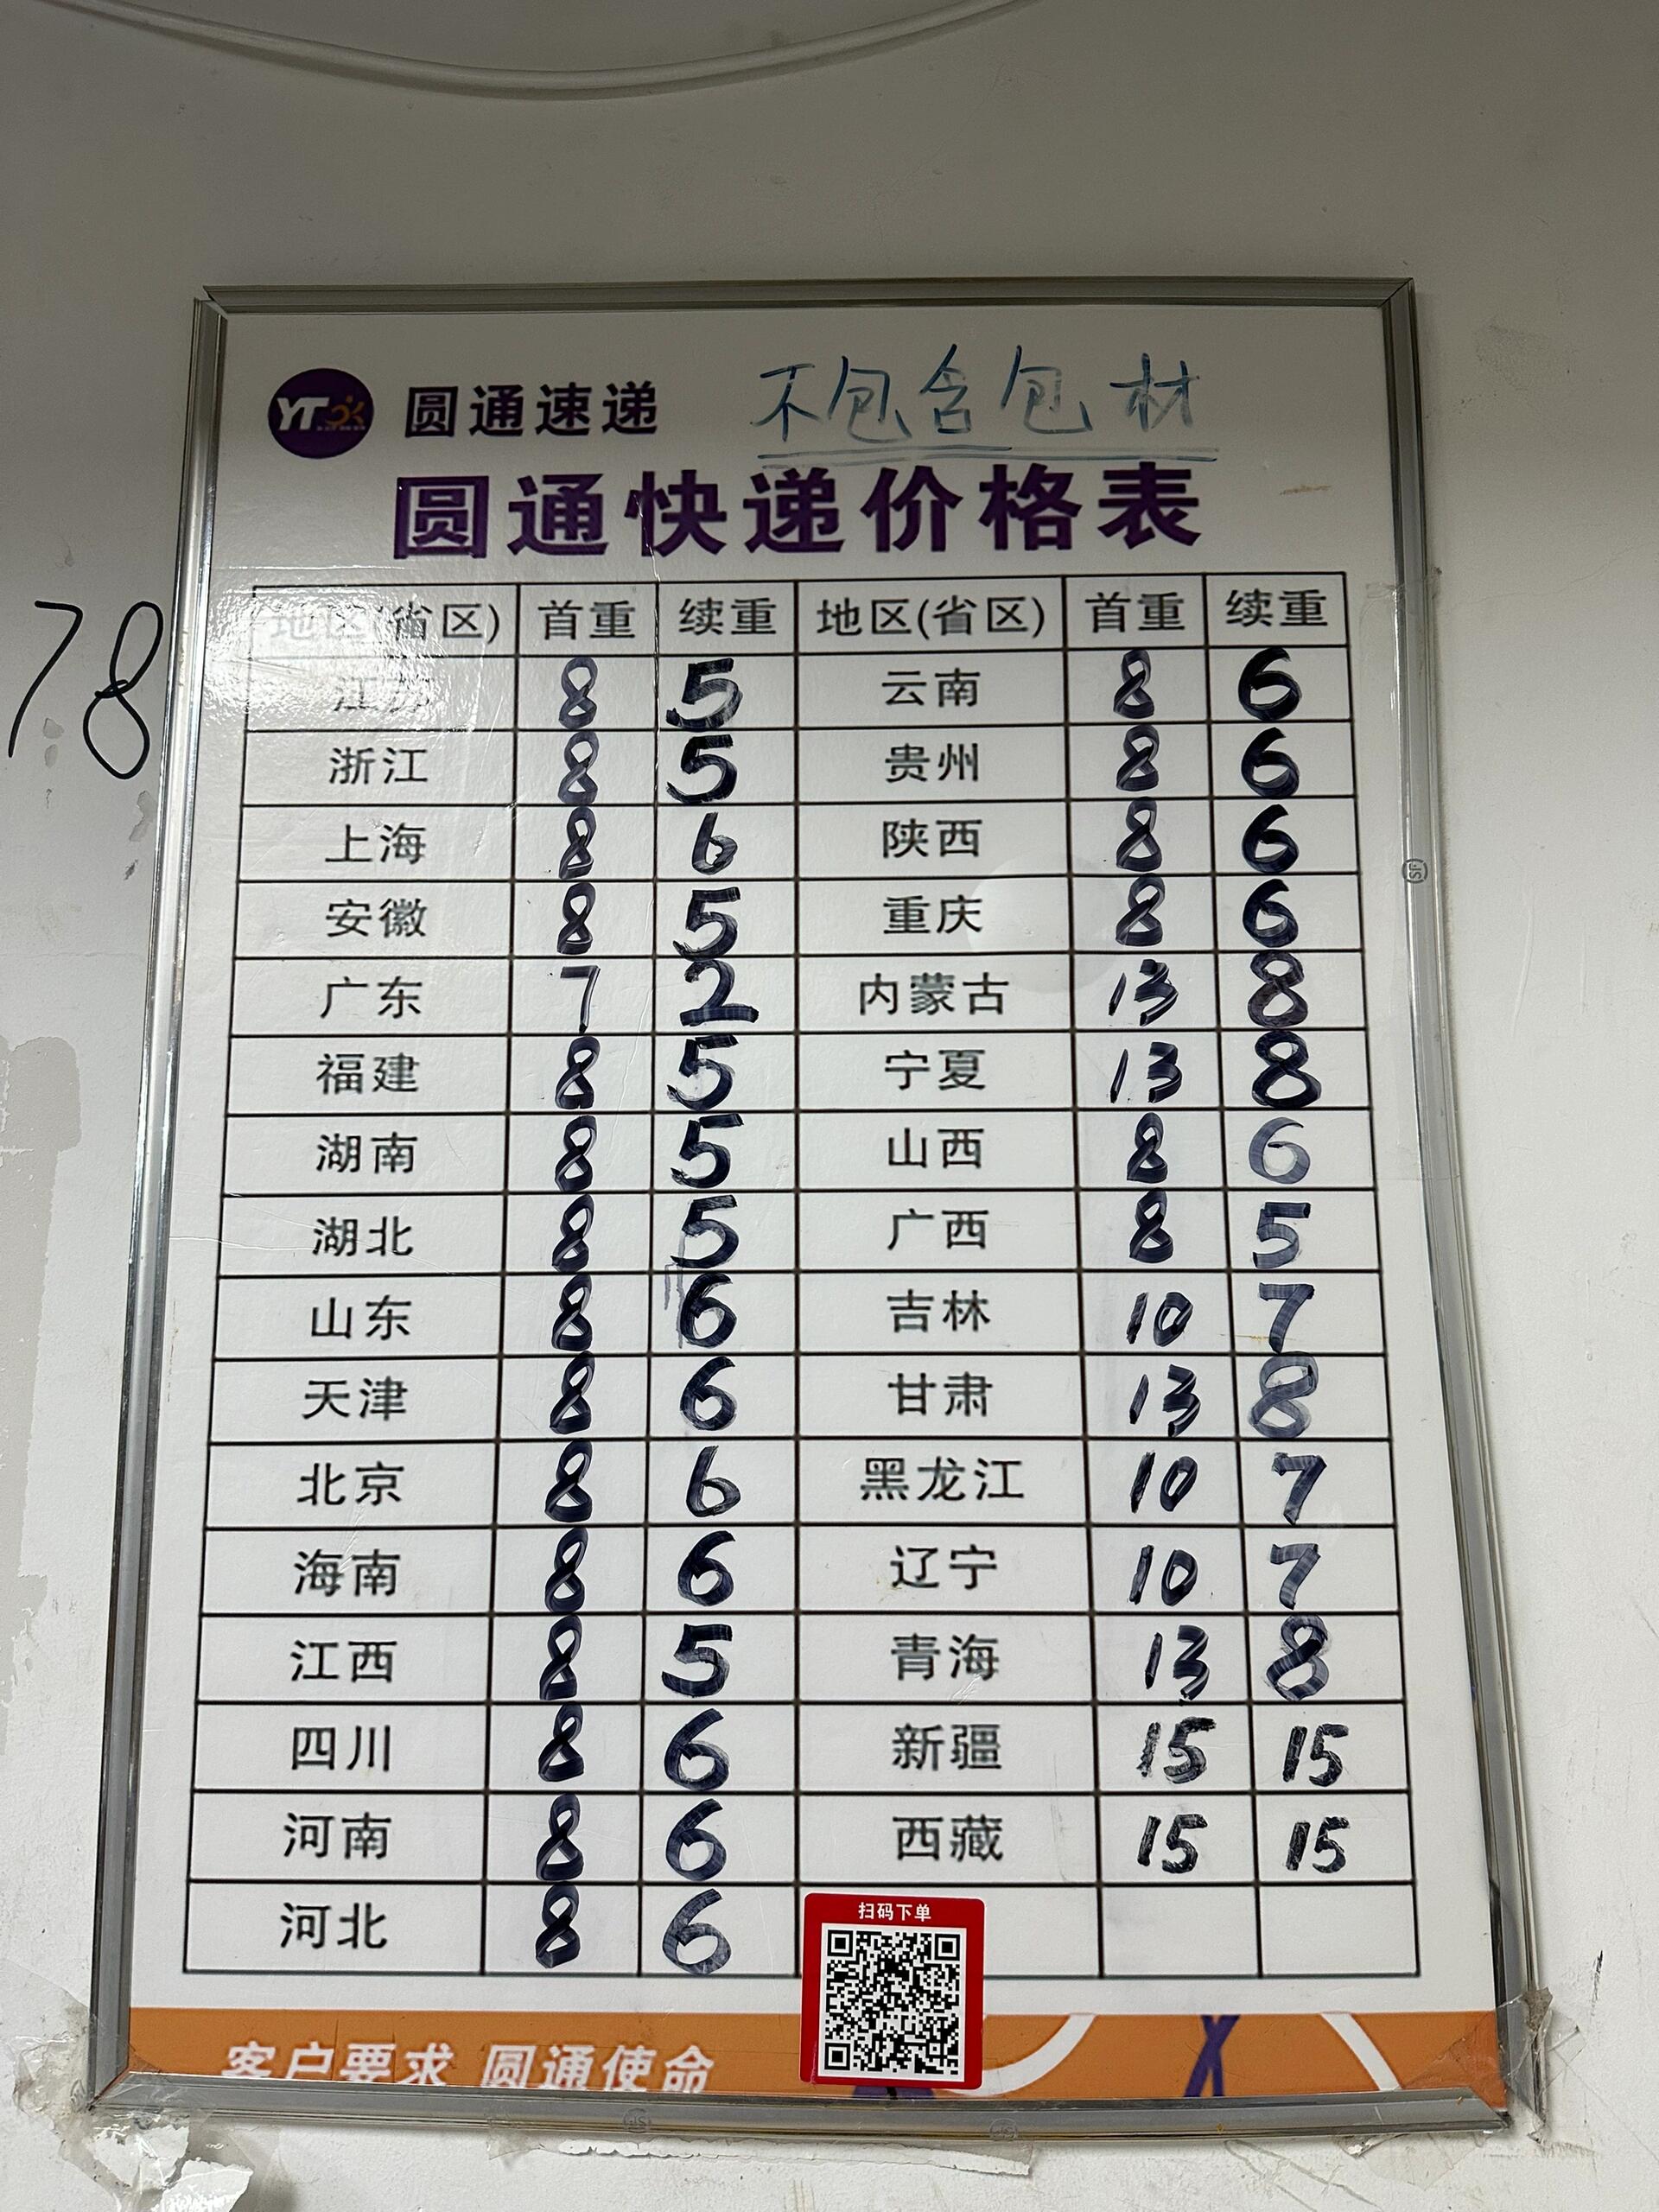 78
YTO 圆通速递 不包含包材
圆通快递价格表
地区(省区) 首重 续重 地区(省区) 首重 续重
江苏 8 5 云南 8 6
浙江 8 5 贵州 8 6
上海 8 6 陕西 8 6
安徽 8 5 重庆 8 6
广东 7 2 内蒙古 13 8
福建 8 5 宁夏 13 8
湖南 8 5 山西 8 6
湖北 8 5 广西 8 5
山东 8 6 吉林 10 7
天津 8 6 甘肃 13 8
北京 8 6 黑龙江 10 7
海南 8 6 辽宁 10 7
江西 8 5 青海 13 8
四川 8 6 新疆 15 15
河南 8 6 西藏 15 15
河北 8 6
扫码下单
客户要求 圆通使命